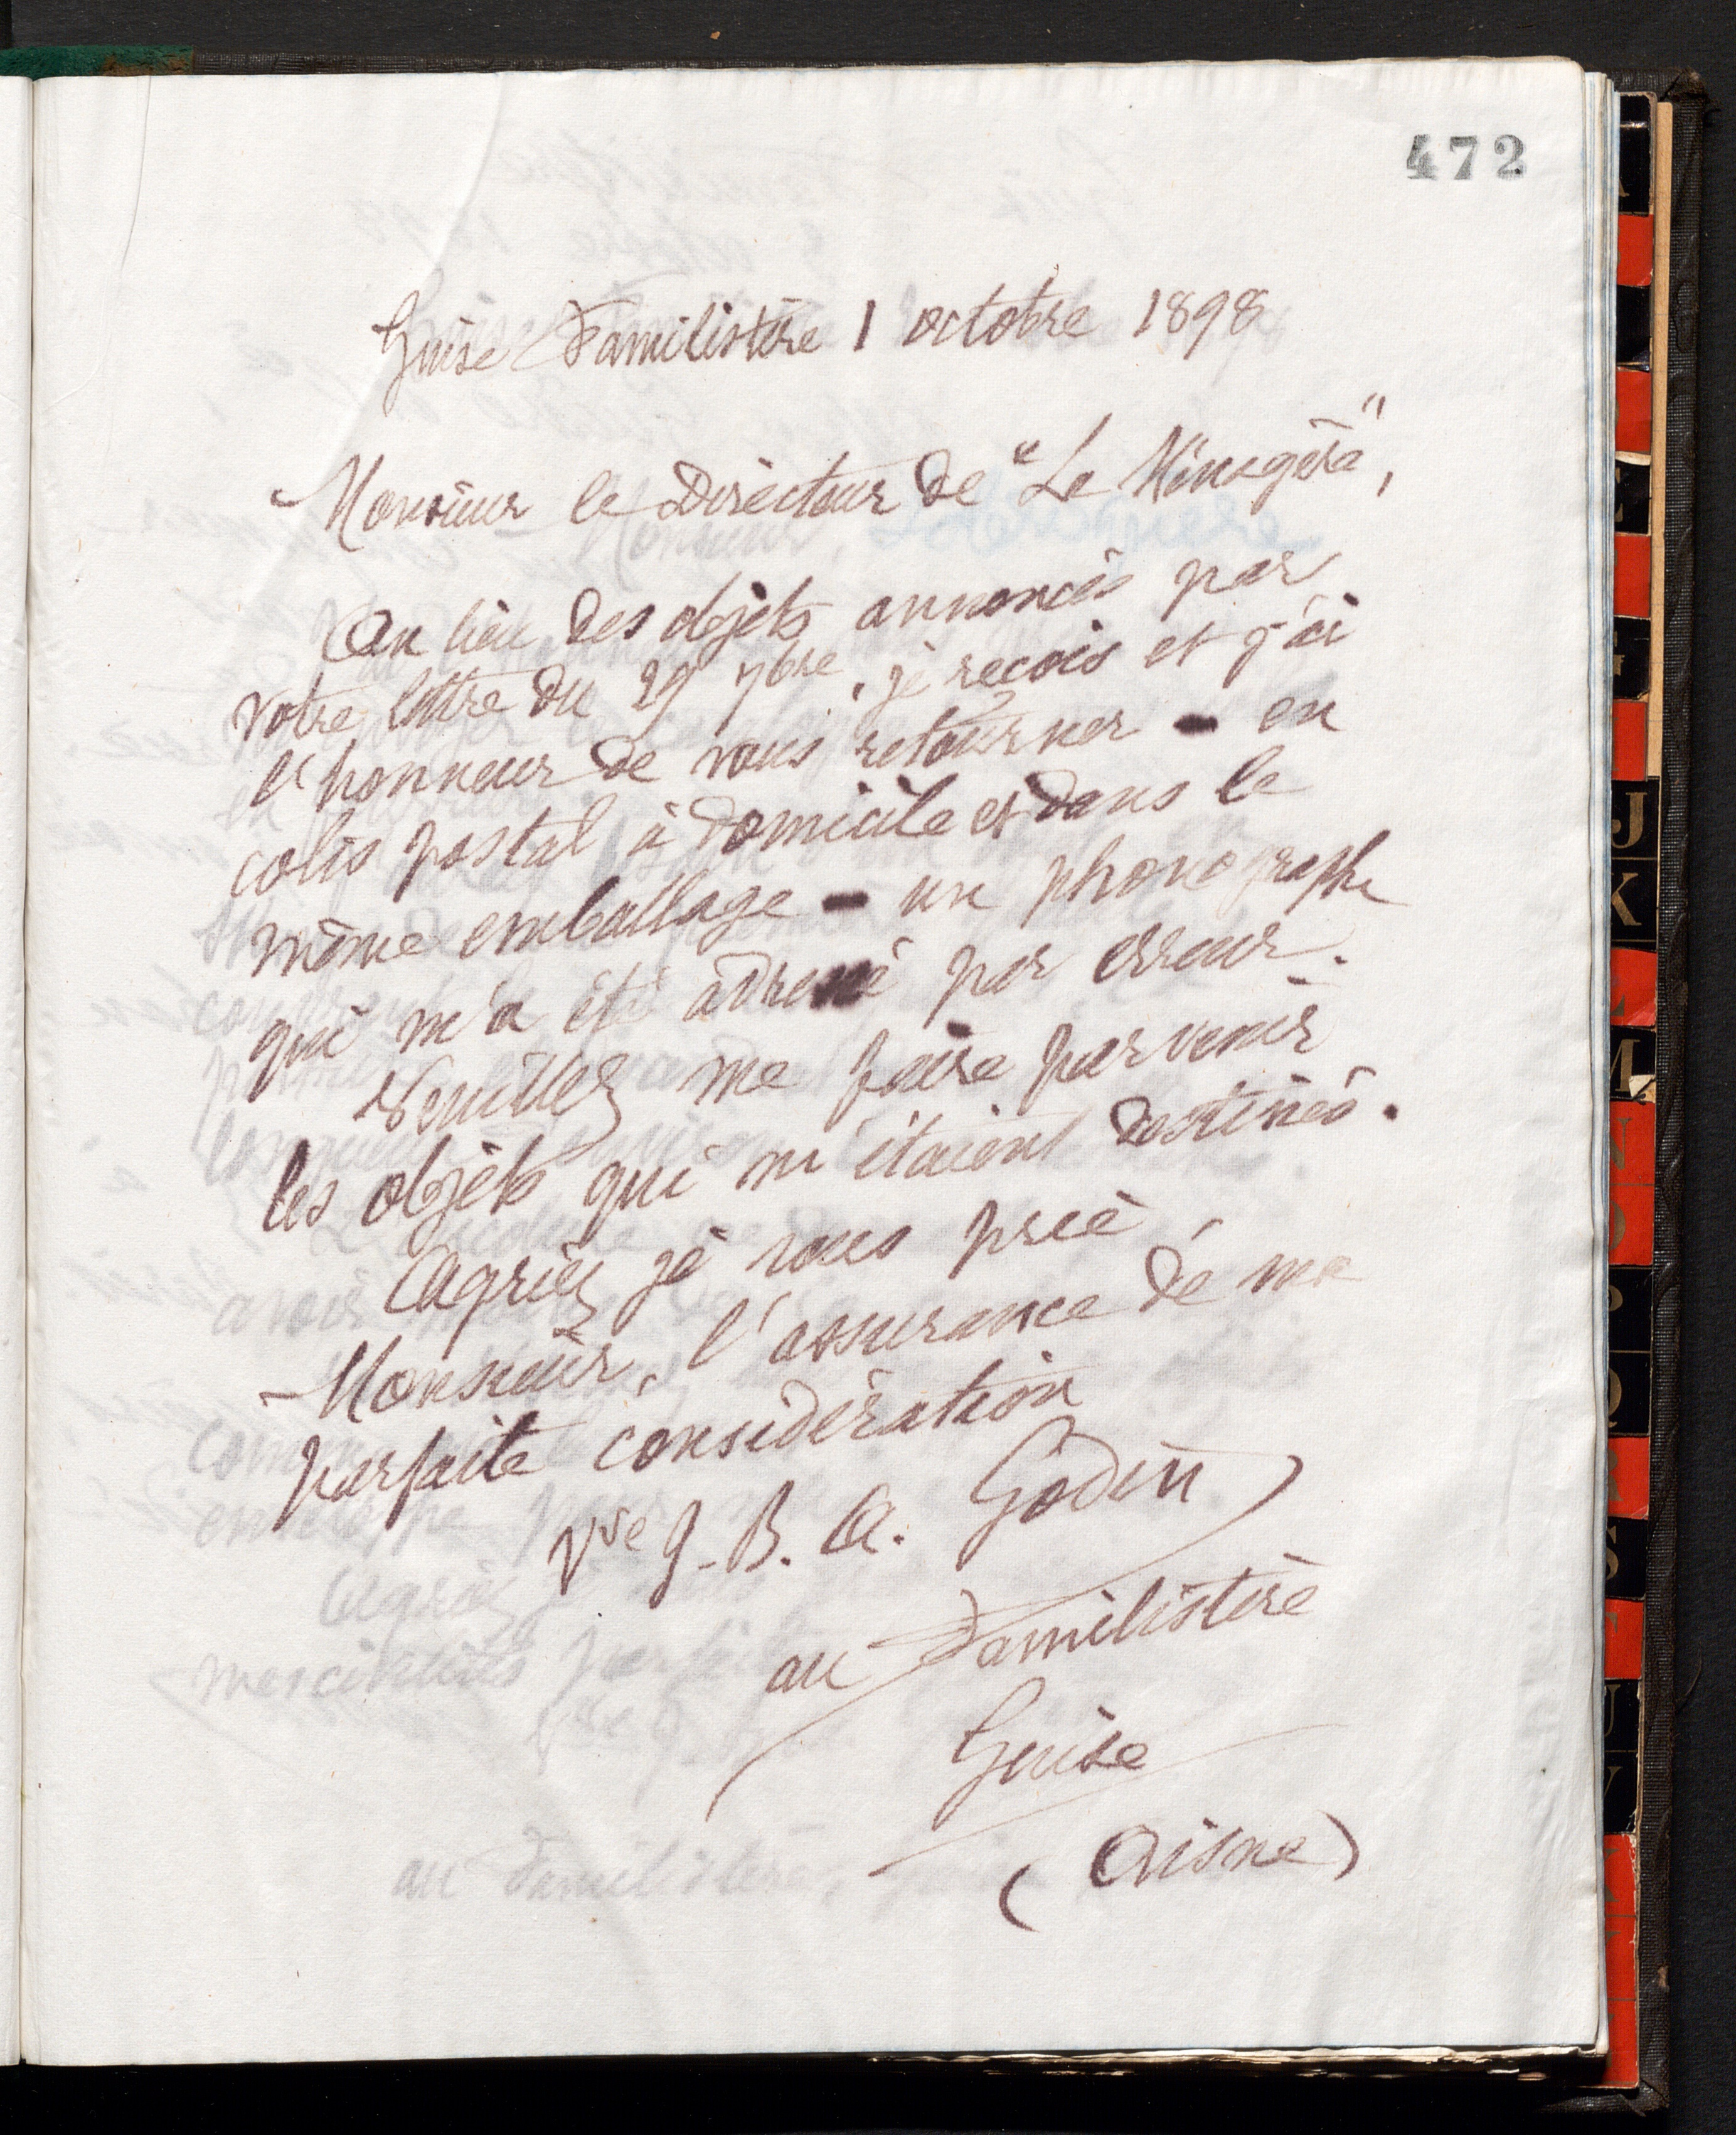 472
Guise Familistère 1 octobre 1898
Monsieur le Directeur de "Le Ménagère",
Au lieu des objets annoncés par
votre lettre du 29 7bre, je reçois et j'ai
l'honneur de vous retourner - en
colis postal à domicile et dans le
même emballage - un phonographe
qui m'a été adressé par erreur.
Veuillez me faire parvenir
les objets qui m'étaient destinés.
Agréez je vous prie,
Monsieur, l'assurance de ma
parfaite considération
Vve J. B. A. Godin
au Familistère
Guise
(Aisne)